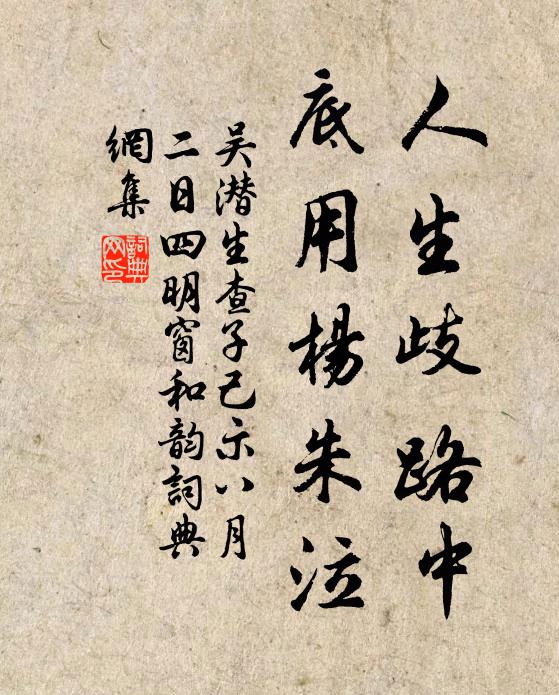 人生歧路中
底用楊朱泣
吴潜生查子己示八月
二日四明窗和韵詞典
網集
詞典
网印